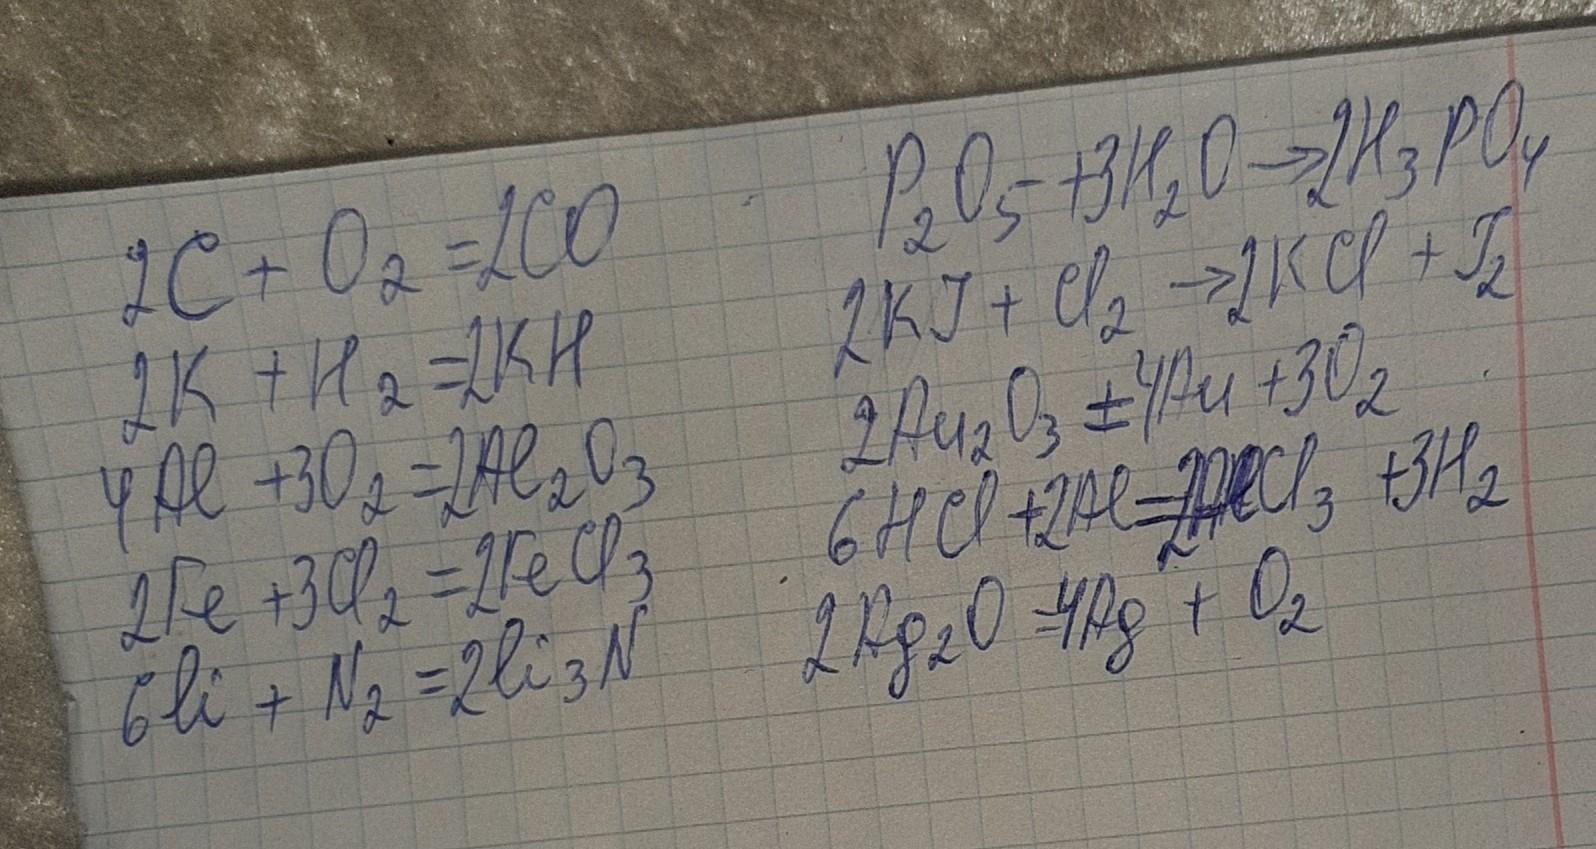 2C + O₂ = 2CO
2K + H₂ = 2KH
4Al + 3O₂ = 2Al₂O₃
2Fe + 3Cl₂ = 2FeCl₃
6li + N₂ = 2li₃N
P₂O₅ + 3H₂O → 2H₃PO₄
2KJ + Cl₂ → 2KCl + J₂
2Au₂O₃ = 4Au + 3O₂
6HCl + 2Al = 2AlCl₃ + 3H₂
2Ag₂O = 4Ag + O₂